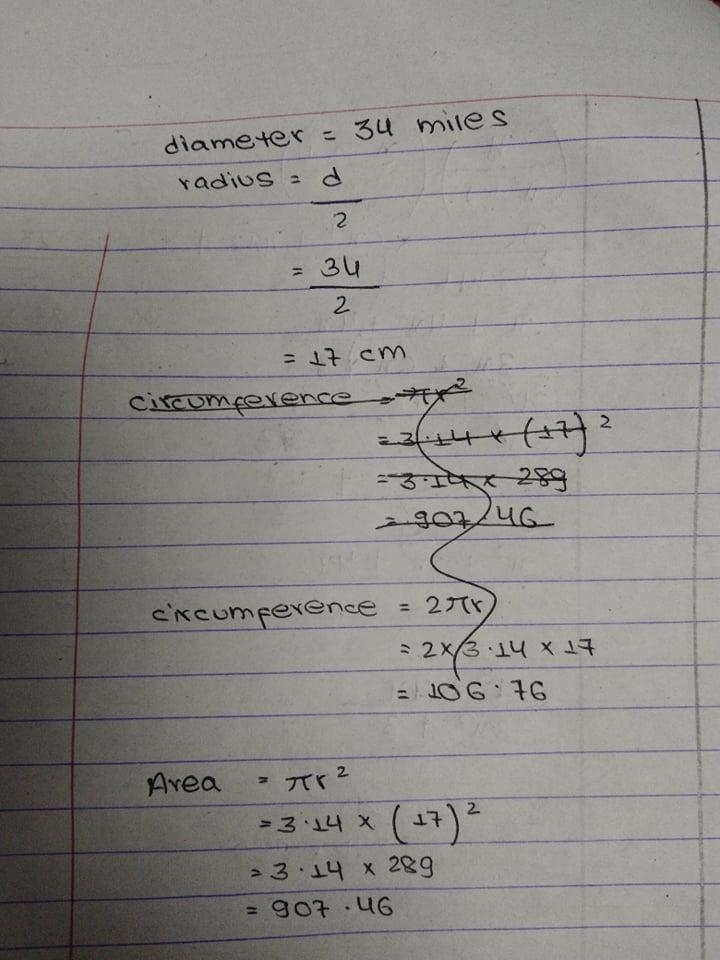 diameter = 34 miles
radius = d
2
= 34
2
= 17 cm
circumference = πr²
= 3.14 × (17)²
= 3.14 × 289
= 907.46
circumference = 2πr
= 2×3.14 × 17
= 106.76
Area = πr²
= 3.14 × (17)²
= 3.14 × 289
= 907.46